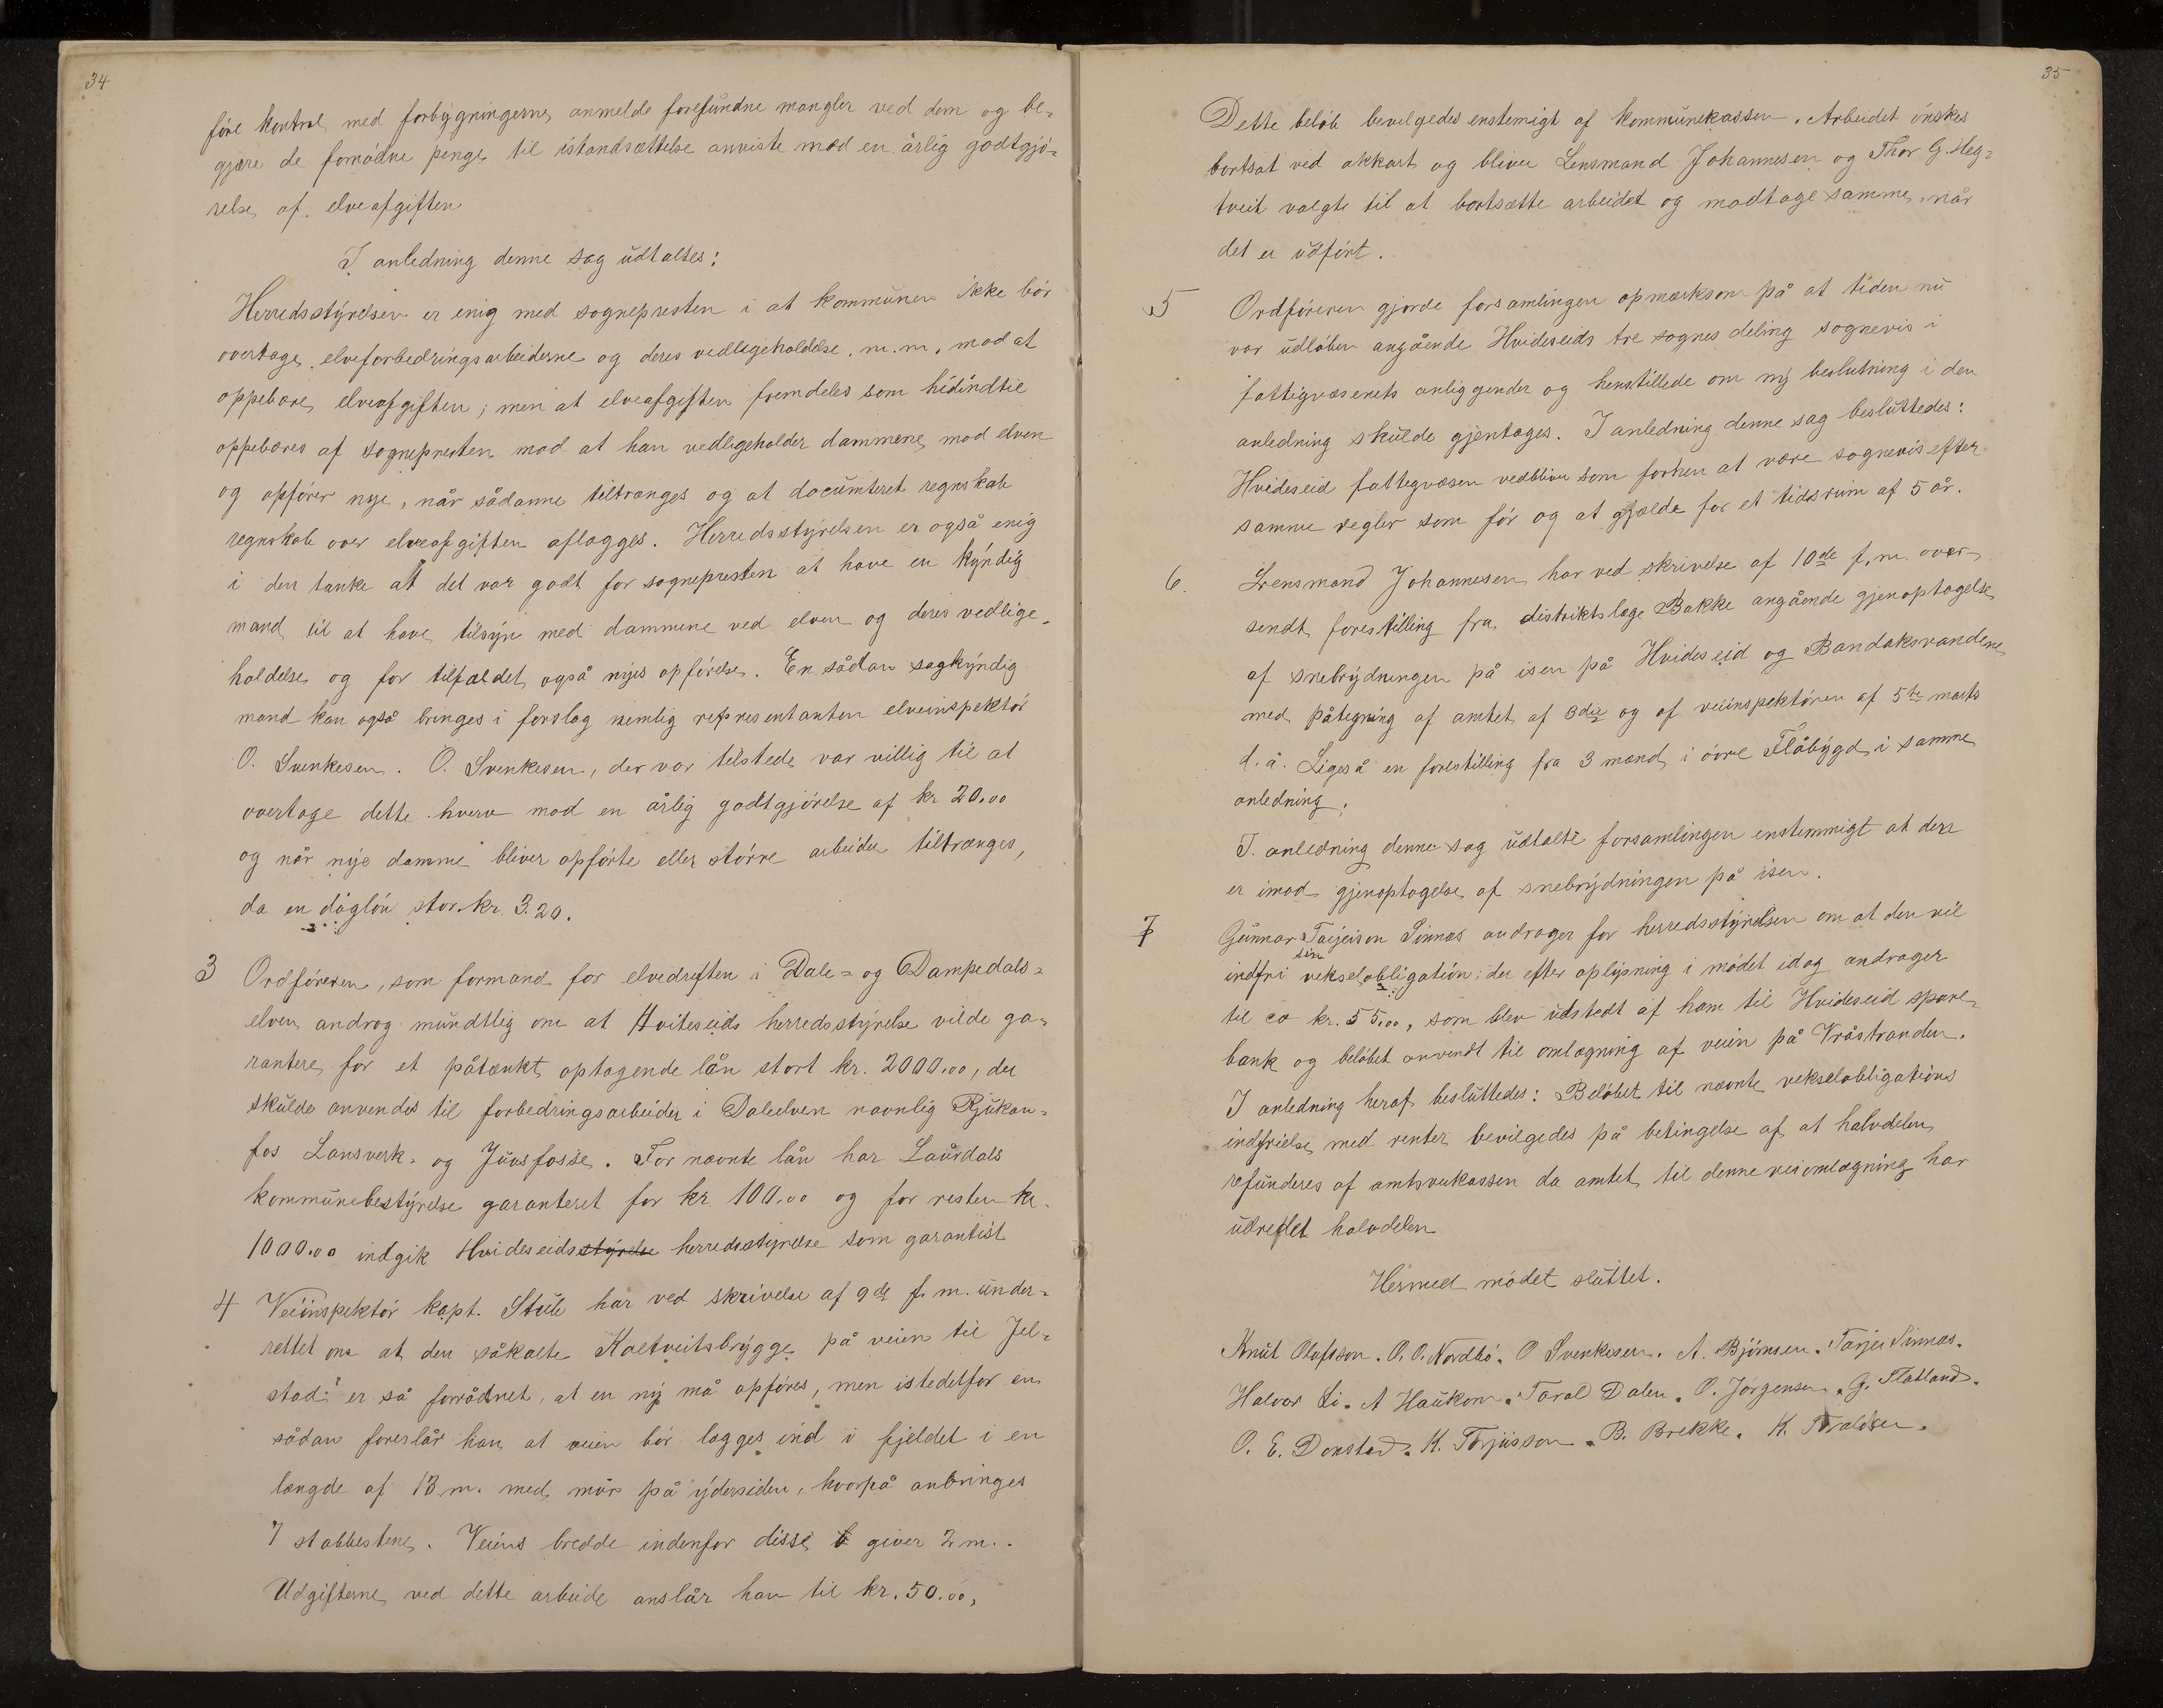 34
føre kontrol med forbygningerne, anmelde forefundne mangler ved dem og be-
gjære de fornødne penge til istandsættelse anviste mod en årlig godtgjø-
relse af elveafgiften
I anledning denne sag udtaltes:
Herredsstyrelsen er enig med sognepresten i at kommunen ikke bør
overtage elveforbedringsarbeiderne og deres vedligeholdelse, m.m. mod at
oppebære elveafgiften; men at elveafgiften fremdeles som hidindtil
oppebæres af sognepresten mod at han vedligeholder dammene mod elven
og opfører nye, når sådanne tiltrænges og at documteret regnskab
regnskab over elveafgiften aflægges. Herredsstyrelsen er også enig
i den tanke at det var godt for sognepresten at have en kyndig
mand til at have tilsyn med dammene ved elven og deres vedlige-
holdelse og for tilfældet også nyes opførelse. En sådan sagkyndig
mand kan også bringes i forslag nemlig representanten elveinspektør
O. Svenkesen. O. Svenkesen, der var tilstede var villig til at
overtage dette hverv mod en årlig godtgjørelse af kr 20.00
og når nye damme bliver opførte eller større arbeider tiltrænges,
da en dagløn stor kr. 3.20.
3 Ordføreren, som formand for elvedriften i Dale- og Dampedals-
elven androg mundtlig om at Hviteseids herredsstyrelse vilde ga-
rantere for et påtænkt optagende lån stort kr. 2000.00, der
skulde anvendes til forbedringsarbeider i Daleelven navnlig Rjukan-
fos Lansverk- og Juvsfosse. For nævnte lån har Laurdals
kommunebestyrelse garanteret for kr 100.00 og for resten kr.
1000.00 indgik Hvideseids styrelse herredsstyrelse som garantist
4 Veiinspektør kapt. Stub har ved skrivelse af 9de f. m. under-
rettet om at den såkalte Kaltveitsbrygge på veien til Jel-
stad er så forrådnet, at en ny må opføres, men istedetfor en
sådan foreslår han at veien bør lægges ind i fjeldet i en
længde af 13 m. med mur på ydersiden, hvorpå anbringes
7 stabbestene. Veiens bredde indenfor disse b giver 2 m.
Udgifterne ved dette arbeide anslår han til kr. 50.00,
35
Dette beløb bevelgedes enstemigt af kommunekassen. Arbeidet ønskes
bortsat ved akkort og bliver Lensmand Johannesen og Thor G. Heg-
tveit valgte til at bortsætte arbeidet og modtage samme, når
det er udført.
5 Ordføreren gjorde forsamlingen opmærksom på at tiden nu
var udløben angående Hvideseids tre sognes deling sognevis i
fattigvæsenets anliggender og henstillede om ny beslutning i den
anledning skulde gjentages. I anledning denne sag besluttedes:
Hvideseid fattegvæsen vedbliver som forhen at være sognevis efter
samme regler som før og at gjælde for et tidsrum af 5 år.
6. Lensmand Johannesen har ved skrivelse af 10de f. m. over-
sendt forestilling fra distriktslæge Bakke angående gjenoptagelse
af snebrydningen på isen på Hvideseid og Bandaksvandene
med påtegning af amtet af 3die og af veiinspektøren af 5te marts
d. å. Ligeså en forestilling fra 3 mænd i øvre Flåbygd i samme
anledning.
I anledning denne sag udtalte forsamlingen enstemmigt at den
er imod gjenoptagelse af snebrydningen på isen.
7 Gunnar Tarjeison Sinnes andrager for herredsstyrelsen om at den vil
indfri sin vekselobligation, der efter oplysning i mødet idag andrager
til ca kr. 55.00, som blev udstedt af ham til Hvideseid spare-
bank og beløbet anvendt til omlægning af veien på Vråstranden.
I anledning heraf besluttedes: Beløbet til nævnte vekselobligations
indfrielse med renter bevilgedes på betingelse af at halvdelen
refunderes af amtsveikassen da amtet til denne veiomlægning har
udredet halvdelen
Hermed mødet sluttet.
Knut Olafsson. O. O. Nordbø. O Svenkesen. A. Bjørnsen. Tarjei Sinnes.
Halvor Li. A Haukom. Taral Dalen. O. Jørgensen. G. Flatland.
O. E. Donstad. K. Torjusson. B. Brekke. K. Taraldsen.